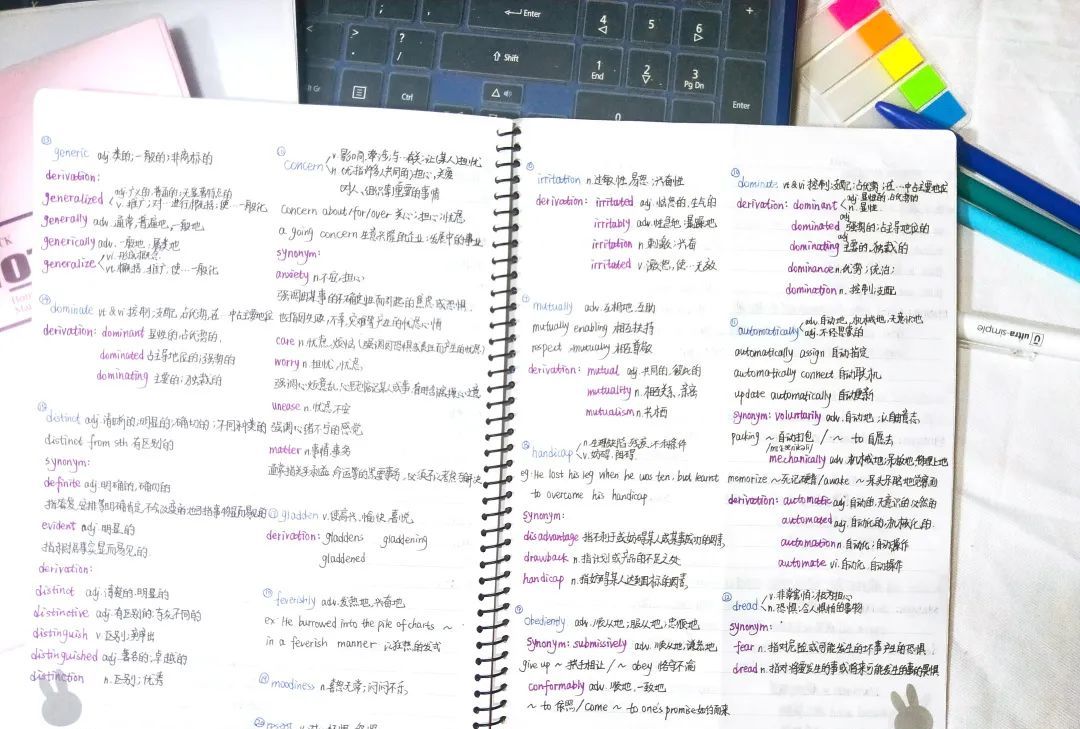 Enter
Shift
Ctrl
4
5
6
1
End
2
3
Pg Dn
Enter
0
generic adj. 类的;一般的;非商标的
derivation:
generalized
v. 推广;对…进行概括;使…一般化
generally adv. 通常;普遍地,一般地
generically adv. 一般地;属类地
generalize vi. 形成概念
vt. 概括,推广,使…一般化
dominate vt & vi 控制;支配;占优势;在…中占主要地位
derivation: dominant 显性的;占优势的,
dominated 占主导地位的;强势的
dominating 主要的;独裁的
distinct adj. 清晰的;明显的;确切的;不同种类的
distinct from sth 有区别的
synonym:
definite adj. 明确的,确切的
evident adj. 明显的
指根据事实显而易见的
derivation:
distinct adj. 清楚的,明显的
distinctive adj. 有区别的;与众不同的
distinguish v. 区别;辨别出
distinguished adj. 著名的,卓越的
distinction n. 区别;优秀
concern v. 影响,牵涉,与…有关;让(某人)担忧
n. (尤指许多人共同的)担心,关爱
对人、组织等重要的事情
concern about/for/over 关心;担心;忧虑
a going concern 生意兴隆的企业;发展中的事业
synonym:
anxiety n. 不安;担心
强调因某事的不确定性而引起的焦虑或恐惧,
care n. 忧虑,烦恼
worry n. 担忧,忧虑
unease n. 忧虑,不安
强调心绪不宁的感觉
matter n. 事情,事务
gladden v. 使高兴,愉快,喜悦
derivation: gladdens gladdening
gladdened
feverishly adv. 发热地,兴奋地
ex: He burrowed into the pile of charts ~
in a feverish manner 以狂热的方式
moodiness n. 喜怒无常;闷闷不乐
irritation n. 过敏性,易怒;兴奋性
derivation: irritated adj. 恼怒的,生气的
irritably adv. 性急地;暴躁地
irritation n. 刺激;兴奋
irritated v. 激怒,使…无效
mutually adv. 互相地;互助
mutually enabling 相互扶持
respect mutually 相互尊敬
derivation: mutual adj. 共同的,彼此的
mutuality n. 相互关系,亲密
mutualism n. 共栖
handicap n. 生理缺陷,残废,不利条件
v. 妨碍,阻碍
eg: He lost his leg when he was ten, but learnt
to overcome his handicap.
synonym:
disadvantage 指不利于或妨碍某人或某事成功的因素,
drawback n. 指计划或产品的不足之处
handicap n. 指妨碍某人达到目标的因素,
obediently adv. 顺从地;服从地;忠顺地
synonym: submissively adv. 顺从地,谦恭地
give up ~ 拱手相让 / ~ obey 恪守不渝
conformably adv. 顺地,一致地
~ to 依照 / come ~ to one's promise 如约而来
dominate vt & vi 控制;支配;占优势;在…中占主要地位
derivation: dominant adj. 显性的,占优势的
n. 显性
dominated adj. 强势的;占主导地位的
dominating adj. 主要的,独裁的
dominance n. 优势;统治;
domination n. 控制;支配
automatically adv. 自动地,机械地,无意识地
adj. 不经思索的
automatically assign 自动指定
automatically connect 自动联机
update automatically 自动更新
synonym: voluntarily adv. 自动地;以自由意志
packing ~ 自动打包 / ~ to 自愿去
mechanically adv. 机械地;呆板地;物理上地
memorize ~ 死记硬背 / awake ~
derivation: automatic adj. 自动的,无意识的,必然的
automated adj. 自动化的,机械化的.
automation n. 自动化;自动操作
automate vi. 自动化,自动操作
dread v. 非常害怕;极为担心
n. 恐惧;令人惧怕的事物
synonym:
fear n. 指对危险或可能发生的坏事产生的恐惧.
dread n. 指对将要发生的事或将来可能发生的事的畏惧
ultra·simple